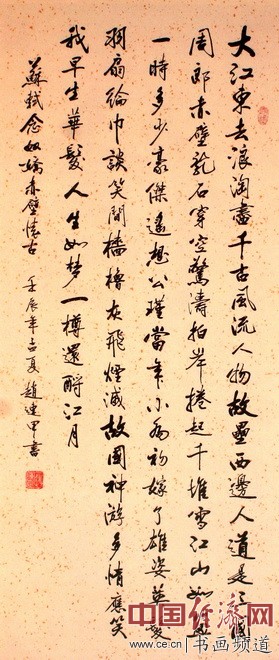 大江東去浪淘盡千古風流人物故壘西邊人道是三國
周郎赤壁亂石穿空驚濤拍岸捲起千堆雪江山如畫
一時多少豪傑遙想公瑾當年小喬初嫁了雄姿英發
羽扇綸巾談笑間檣櫓灰飛煙滅故國神游多情應笑
我早生華髮人生如梦一樽還酹江月
蘇軾念奴嬌赤壁懷古 壬辰年夏 趙連甲書
中国经济网
www.ce.cn 书画频道